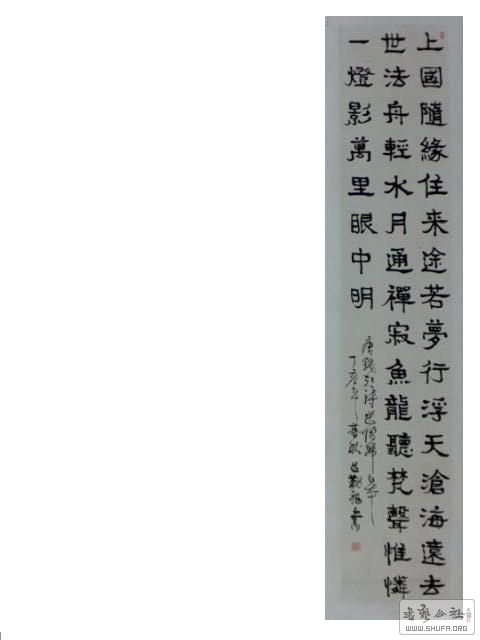 上國隨緣住来途若夢行浮天滄海遠去
世法舟輕水月通禪寂魚龍聽梵聲惟憐
一燈影萬里眼中明
唐錢起詩送僧歸日本
丁亥年
WWW.SHUFA.ORG